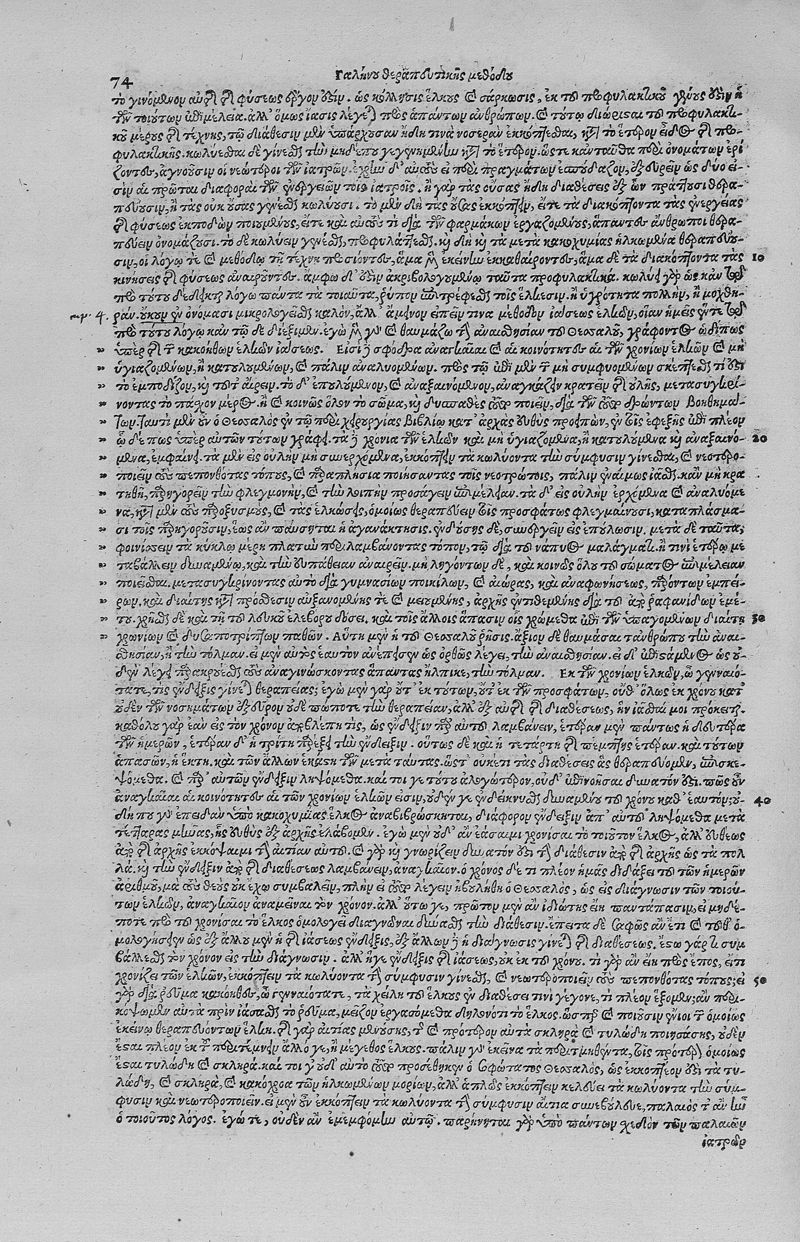 74 Γαληνοῦ θεραπευτικῆς μεθόδου
τὸ γινόμενον αὐτῆς τῆς φύσεως ἔργον ἐστίν. ὡς κόλλησις ἕλκους καὶ σάρκωσις, ἐκ τοῦ προφυλακτικοῦ γένους ἐστὶν ἡ
τῶν τοιούτων ἐπιμέλεια. ἀλλ' ὅμως ἴασις λέγεται πρὸς ἁπάντων ἀνθρώπων. καὶ τούτῳ διώρισται τοῦ προφυλακτι-
κοῦ μέρους τῆς τέχνης, τῷ διάθεσιν μὲν ὑπάρχουσαν ἤδη τινὰ νοσερὰν ἐκκόπτεσθαι, κατὰ τὸ ἕτερον εἶδος τῆς προ-
φυλακτικῆς. κωλύεσθαι δὲ γίνεσθαι τὴν μηδέπω γεγενημένην κατὰ τὸ ἕτερον. ὥστε κἀνταῦθα περὶ ὀνομάτων ἐρί
ζοντες, ἀγνοοῦσιν οἱ νεώτεροι τῶν ἰατρῶν. ἐχρῆν δ' αὐτοὺς εἰ περὶ πραγμάτων ἐσπούδαζον, ἐξευρεῖν ὡς δύο εἰ-
σιν αἱ πρῶται διαφοραὶ τῶν ἐνεργειῶν τοῖς ἰατροῖς. ἢ γὰρ τὰς οὔσας ἤδη διαθέσεις ἐξ ὧν πράττουσι θερα-
πεύουσιν, ἢ τὰς οὐκ οὔσας γενέσθαι κωλύουσι. τὸ μὲν δὴ τὰς οὔσας ἐκκόπτειν, εἴτε τὰ διακόπτοντα τὰς ἐνεργείας
τῆς φύσεως ἐκποδὼν ποιουμένους, εἴτε καὶ αὐτούς τι διὰ τῶν φαρμάκων ἐργαζομένους, ἅπαντες ἄνθρωποι θερα-
πεύειν ὀνομάζουσι. τὸ δὲ κωλύειν γενέσθαι, προφυλάττεσθαι. καὶ δὴ καὶ τὰ μετὰ κακοχυμίας ἡλκωμένα θεραπεύου-
σιν, οἱ λόγῳ τε καὶ μεθόδῳ τῇ τέχνῃ προσιόντες, ἅμα μὲν ἐκείνην ἐκκαθαίροντες, ἅμα δὲ τὰ διακόπτοντα τὰς 10
κινήσεις τῆς φύσεως ἀναιροῦντες. ἄμφω δ' ἐστὶν ἀκριβολογουμένῳ ταῦτα προφυλακτικά. κωλύει γὰρ ὡς κἀν τῷ
πρὸ τούτου δέδεικται λόγῳ πάντα τὰ τοιαῦτα, ῥύπον ἐπιτρέφεσθαι τοῖς ἕλκεσιν. ἢ ὑγρότητα πολλὴν, ἢ μοχθη-
κεφ. 4. ράν. οὔκουν ἐν ὀνόμασι μικρολογεῖσθαι καλὸν, ἀλλ' ἄμεινον εἰπεῖν τινα μέθοδον ἰάσεως ἑλκῶν, οἵαν ἡμεῖς ἔν τε τῷ
πρὸ τούτου λόγῳ κἀν τῷδε διέξιμεν. ἐγὼ μέν γε καὶ θαυμάζω τὴν ἀναισθησίαν τοῦ Θεσσαλοῦ, γράφοντος ὡδίπως
" ὑπὲρ τῆς τῶν κακοήθων ἑλκῶν ἰάσεως. Εἰσὶ δὲ σφόδρα ἀναγκαῖαι καὶ αἱ κοινότητες αἱ τῶν χρονίων ἑλκῶν καὶ μὴ
" ὑγιαζομένων, ἢ κατουλουμένων, καὶ πάλιν ἀναλυομένων. πρὸς τῷ ἐπὶ μὲν τῶν μὴ συμφυομένων σκέπτεσθαι τί ἐστι
" τὸ ἐμποδίζον, καὶ τοῦτ' αἴρειν. τὸ δ' ἐπουλούμενον, καὶ ἀναξαινόμενον, ἀναγκάζειν κρατεῖν τῆς οὐλῆς, μετασυγκρί-
" νοντας τὸ πάσχον μέρος. ἢ καὶ κοινῶς ὅλον τὸ σῶμα, καὶ δυσπαθὲς αὐτὸ ποιεῖν, διὰ τῶν αὐτὸ δρώντων βοηθημά-
των. ταυτὶ μὲν οὖν ὁ Θεσσαλὸς ἐν τῷ περὶ χειρουργίας βιβλίῳ κατ' ἀρχὰς εὐθὺς προειπὼν, ἐν τοῖς ἐφεξῆς ἐπὶ πλέον
" ὧδέ πως ὑπὲρ αὐτῶν τούτων γράφει. τὰ δὲ χρόνια τῶν ἑλκῶν καὶ μὴ ὑγιαζόμενα, ἢ κατουλούμενα καὶ ἀναξαινό- 20
" μενα, ἐμφαίνει. τὰ μὲν εἰς οὐλὴν μὴ συνερχόμενα, ἐκκόπτειν τὰ κωλύοντα τὴν σύμφυσιν γίνεσθαι, καὶ νεοτερο-
" ποιεῖν τοὺς πεπονθότας τόπους, καὶ παραπλήσια ποιήσαντας τοῖς νεοτρώτοις, πάλιν ἐναίμως ἰᾶσθαι. κἂν μὴ κρα
" τηθῇ, παρηγορεῖν τὴν φλεγμονὴν, καὶ τὴν λοιπὴν προσάγειν ἐπιμέλειαν. τὰ δ' εἰς οὐλὴν ἐρχόμενα καὶ ἀναλυόμε
" να, κατὰ μὲν τοὺς παροξυσμοὺς, καὶ τὰς ἑλκώσεις, ὁμοίως θεραπεύειν τοῖς προσφάτως φλεγμαίνουσι, καταπλάσμα-
" σι τοῖς παρηγοροῦσιν, ἕως ἂν παύσηται ἡ ἀγανάκτησις. ἐνδούσης δὲ, συνεργεῖν εἰς ἐπούλωσιν. μετὰ δὲ ταῦτα,
" φοινίσσειν τὰ κύκλῳ μέρη πλατὺν περιλαμβάνοντας τόπον, τῷ διὰ τοῦ νάπυος μαλάγματι. ἤ τινι ἑτέρῳ με
" ταβάλλειν δυναμένῳ, καὶ τὴν εὐπάθειαν ἀναιρεῖν. μὴ ληγόντων δὲ, καὶ κοινῶς ὅλου τοῦ σώματος ἐπιμέλειαν
" ποιεῖσθαι. μετασυγκρίνοντας αὐτὸ διὰ γυμνασίων ποικίλων, καὶ αἰώρας, καὶ ἀναφωνήσεως, πρός τῶν ἐμπεί-
" ρων, καὶ διαίτης κατὰ πρόσθεσιν αὐξανομένης τε καὶ μειουμένης, ἀρχῆς ἐντιθεμένης διὰ τοῦ ἀπὸ ῥαφανίδων ἐμέ-
" του. χρῆσθαι δὲ καὶ τῇ τοῦ λευκοῦ ἑλλεβόρου δόσει, καὶ τοῖς ἄλλοις ἅπασιν οἷς χρώμεθα ἐπὶ τῶν ὑπαγομένων διαίτῃ 30
" χρονίων καὶ δυσαποτρίπτων παθῶν. Αὕτη μὲν ἡ τοῦ Θεσσαλοῦ ῥῆσις. ἄξιον δὲ θαυμάσαι τἀνθρώπου τὴν ἀναι-
σθησίαν, ἢ τὴν τόλμαν. εἰ μὲν αὑτὸς ἑαυτὸν ἀνέπεισεν ὡς ὀρθῶς λέγει, τὴν ἀναισθησίαν. εἰ δ' ἐπιστάμενος ὡς οὐ-
δὲν λέγει παρακρούεσθαι τοὺς ἀναγινώσκοντας ἅπαντας ἤλπικε, τὴν τόλμαν. Ἐκ τῶν χρονίων ἑλκῶν, ὦ γενναιό-
τατε, τίς ἔνδειξις γίνεται θεραπείας; ἐγὼ μὲν γὰρ οὔτ' ἐκ τούτων, οὔτ' ἐκ τῶν προσφάτων, οὔθ' ὅλως ἐκ χρόνου κατ'
οὐδὲν τῶν νοσημάτων ἐξεῦρον οὐδεπώποτε τὴν θεραπείαν, ἀλλ' ἐξ αὐτῆς τῆς διαθέσεως, ἣν ἰᾶσθαί μοι πρόκειται.
καθόλου γὰρ ἐὰν εἰς τὸν χρόνον ἀποβλέπῃ τις, ὡς ἔνδειξιν παρ' αὐτοῦ λαμβάνειν, ἕτερον μὲν πάντως ἡ δευτέρα
τῶν ἡμερῶν, ἑτέραν δ' ἡ τρίτη παρέξει τὴν ἔνδειξιν. οὕτως δὲ καὶ ἡ τετάρτη τῆς πέμπτης ἑτέραν. καὶ τούτων
ἁπασῶν, ἡ ἕκτη, καὶ τῶν ἄλλων ἑκάστη τῶν μετὰ ταύτας. ὥστ' οὐκέτι τὰς διαθέσεις ἃς θεραπεύομεν, ἐπισκε-
ψόμεθα. καὶ παρ' αὐτῶν ἔνδειξιν ληψόμεθα. καί τοι γε τούτου ἀλογώτερον, οὐδ' ἐπινοῆσαι δυνατόν ἐστι. πῶς οὖν
ἀναγκαῖαι αἱ κοινότητες αἱ τῶν χρονίων ἑλκῶν εἰσιν, οὐδέν γε ἐνδείκνυσθαι δυναμένου τοῦ χρόνου καθ' ἑαυτόν; οὐ- 40
δὴ που γὰρ ἐπειδὰν ὑπὸ κακοχυμίας ἕλκος ἀναβιβρώσκηται, διάφορον ἔνδειξιν ἀπ' αὐτοῦ ληψόμεθα μετὰ
τέτταρας μῆνας, ἧς εὐθὺς ἐξ ἀρχῆς ἐλάβομεν. ἐγὼ μὲν οὐδ' ἂν ἐάσαιμι χρονίσαι τὸ τοιοῦτον ἕλκος, ἀλλ' εὐθέως
ἀπ' ἀρχῆς ἐκκόψαιμι τὴν αἰτίαν αὐτοῦ. καὶ γὰρ καὶ γνωρίζειν δυνατόν ἐστι τὴν διάθεσιν ἀπ' ἀρχῆς ὡς τὰ πολ
λά. καὶ τὴν ἔνδειξιν ἀπὸ τῆς διαθέσεως λαμβάνειν, ἀναγκαῖον. ὁ χρόνος δέ τι πλέον ἡμᾶς διδάξει τοῦ τῶν ἡμερῶν
ἀριθμοῦ, μὰ τοὺς θεοὺς οὐκ ἔχω συμβαλεῖν, πλὴν εἰ τοῦτο λέγειν ἠβουλήθη ὁ Θεσσαλὸς, ὡς εἰς διάγνωσιν τῶν τοιού-
των ἑλκῶν, ἀναγκαῖον ἀναμεῖναι τὸν χρόνον. ἀλλ' οὕτω γε, πρῶτον μὲν ἂν ἰδιώτης εἴη παντάπασιν, εἰ μηδέ-
ποτε πρὸ τοῦ χρονίσαι τὸ ἕλκος ὁμολογεῖ διαγνῶναι δύνασθαι τὴν διάθεσιν. ἔπειτα δὲ σαφῶς ἂν ἔτι καὶ τοῦθ' ὁ-
μολογήσειεν ὡς ἐξ ἄλλου μὲν ἡ τῆς ἰάσεως ἔνδειξις, ἐξ ἄλλων δὲ ἡ διάγνωσις γίνεται τῆς διαθέσεως. ἔστω γάρ τι συμ
βάλλεσθαι τὸν χρόνον εἰς τὴν διάγνωσιν. ἀλλ' ἥ γε ἔνδειξις τῆς ἰάσεως, οὐκ ἐκ τοῦ χρόνου. τί γὰρ ἂν εἴη πρὸς ἔπος, εἴ τι
χρονίζει τῶν ἑλκῶν, ἐκκόπτειν τὰ κωλύοντα τὴν σύμφυσιν γίνεσθαι, καὶ νεωτεροποιεῖν τοὺς πεπονθότας τόπους; εἰ 50
γὰρ διὰ ῥεῦμα κακόηθες, ὦ γενναιότατε, τὰ χείλη τοῦ ἕλκους ἐν διαθέσει τινὶ γέγονε, τί πλέον ἕξομεν; ἂν περι-
κόψωμεν αὐτὰ πρὶν ἰᾶσθαι τὸ ῥεῦμα, μεῖζον ἐργασόμεθα δηλονότι τὸ ἕλκος. ὥσπερ καὶ ποιοῦσιν ἔνιοι τῶν ὁμοίως
ἐκείνῳ θεραπευόντων ἕλκη. τῆς γὰρ αἰτίας μενούσης, τῆς καὶ πρότερον αὐτὰ σκληρὰ καὶ τυλώδη ποιησάσης, οὐδὲν
ἔσται πλέον ἐκ τοῦ περιτεμνεῖν ἀλλό γε, ἢ μέγεθος ἕλκους. πάλιν γὰρ ἐκεῖνα τὰ περιτμηθέντα, τοῖς πρότερον ὁμοίως
ἔσται τυλώδη καὶ σκληρά. καί τοι γ' οὐδ' αὐτὸ τοῦτο προσέθηκεν ὁ σοφώτατος Θεσσαλὸς, ὡς ἐκκόπτειν δεῖ τὰ τυ-
λώδη, καὶ σκληρὰ, καὶ κακόχροα τῶν ἡλκωμένων μορίων, ἀλλ' ἁπλῶς ἐκκόπτειν κελεύει τὰ κωλύοντα τὴν σύμ-
φυσιν καὶ νεωτεροποιεῖν. εἰ μὲν οὖν ἐκκόπτειν τὰ κωλύοντα τὴν σύμφυσιν αἴτια συνεβούλευε, παλαιὸς τ' ἂν ἦν
ὁ τοιοῦτος λόγος. ἐγώ τε, οὐδὲν ἂν ἐμεμφόμην αὐτῷ. παρῄνηται γὰρ ὑπὸ πάντων σχεδὸν τῶν παλαιῶν
ἰατρῶν